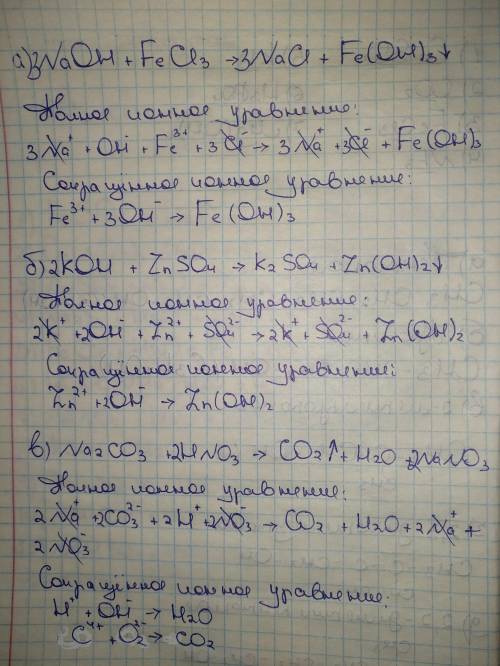 а) 3NaOH + FeCl₃ → 3NaCl + Fe(OH)₃↓
Полное ионное уравнение:
3Na⁺ + OH⁻ + Fe³⁺ + 3Cl⁻ → 3Na⁺ + 3Cl⁻ + Fe(OH)₃
Сокращённое ионное уравнение:
Fe³⁺ + 3OH⁻ → Fe(OH)₃
б) 2KOH + ZnSO₄ → K₂SO₄ + Zn(OH)₂↓
Полное ионное уравнение:
2K⁺ + 2OH⁻ + Zn²⁺ + SO₄²⁻ → 2K⁺ + SO₄²⁻ + Zn(OH)₂
Сокращённое ионное уравнение:
Zn²⁺ + 2OH⁻ → Zn(OH)₂
в) Na₂CO₃ + 2HNO₃ → CO₂↑ + H₂O + 2NaNO₃
Полное ионное уравнение:
2Na⁺ + 2CO₃²⁻ + 2H⁺ + 2NO₃⁻ → CO₂ + H₂O + 2Na⁺ +
2NO₃⁻
Сокращённое ионное уравнение:
H⁺ + OH⁻ → H₂O
C⁴⁺ + O₂²⁻ → CO₂